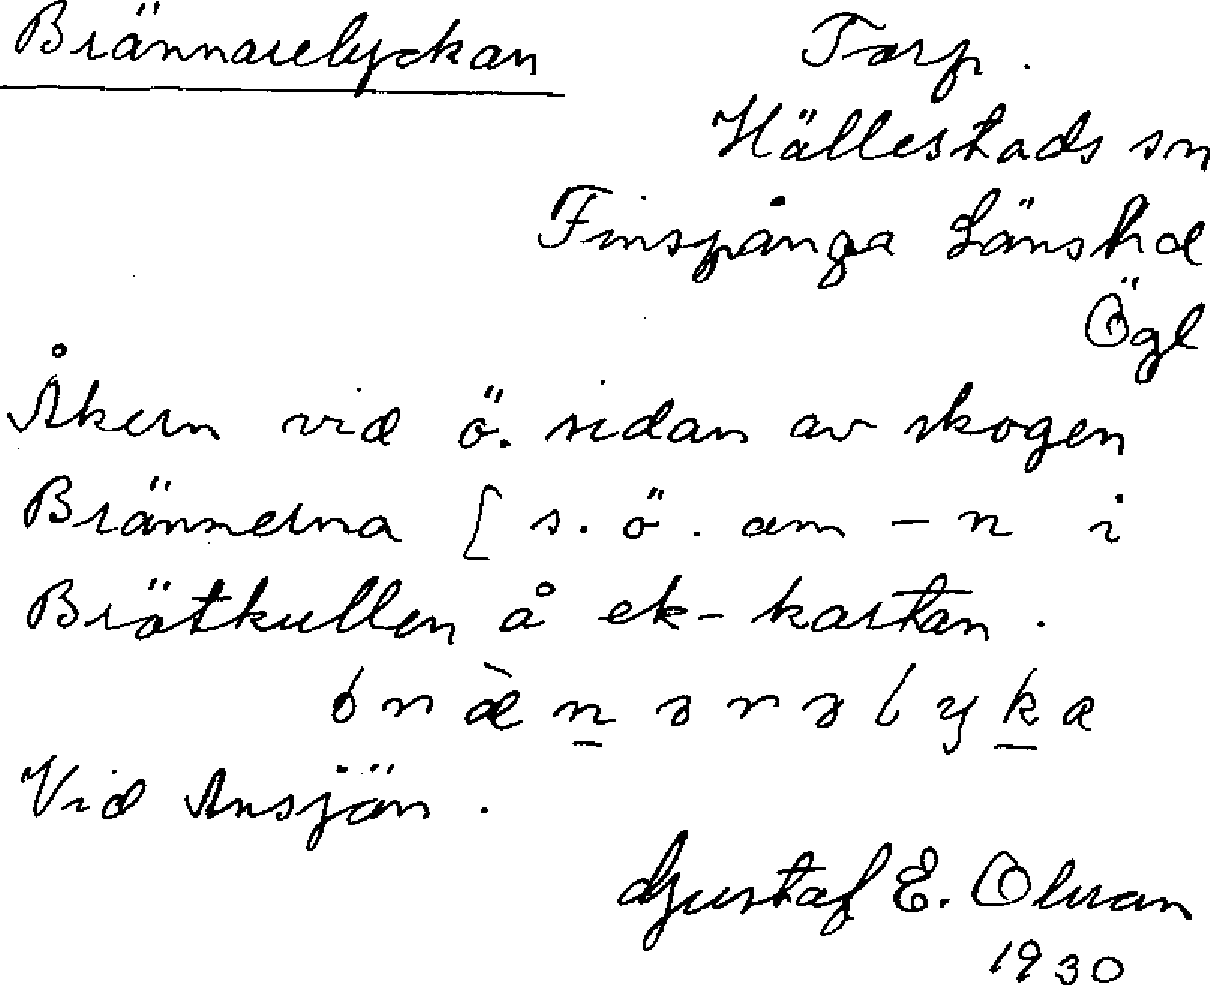 Brännarelyckan
Torp.
Hällestads sn
Finspånga Länshd
Ögl
Åkern vid ö. sidan av skogen
Brännerna [ s. ö. om - n i
Brötkullen å ek-kartan.
bræ̀n̲ərəlyk̲a
Vid Ansjön.
Gustaf E. Olsson
1930